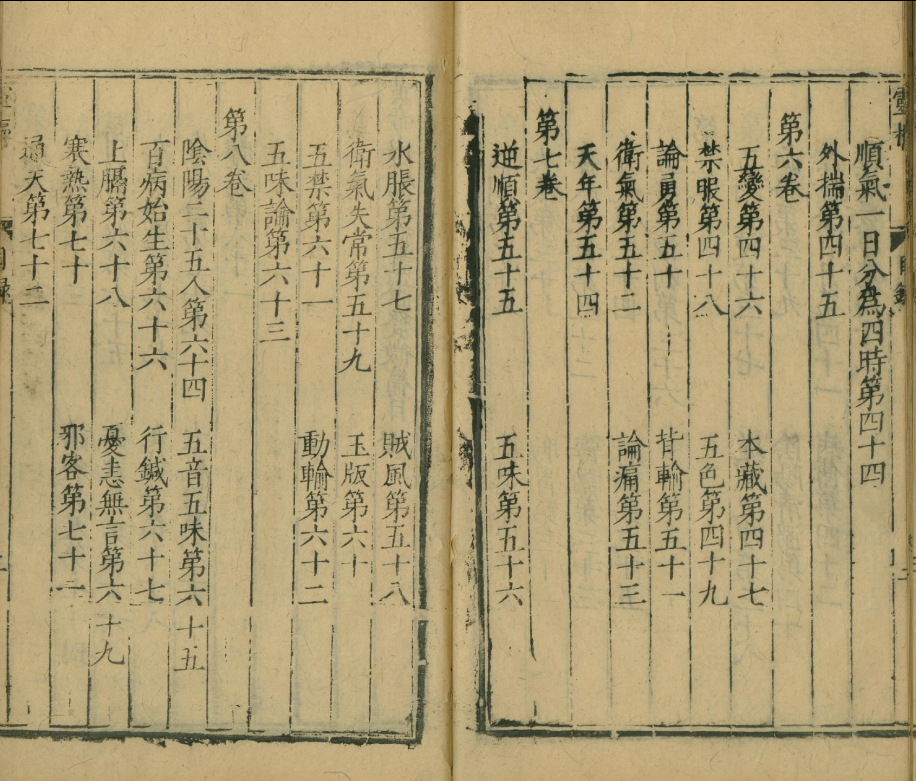 順氣一日分為四時第四十四
外揣第四十五
第六卷
五變第四十六 本藏第四十七
禁眼第四十八 五色第四十九
論勇第五十 背輸第五十一
衛氣第五十二 論痛第五十三
天年第五十四
第七卷
逆順第五十五 五味第五十六
水脹第五十七 賊風第五十八
衛氣失常第五十九 玉版第六十
五禁第六十一 動輸第六十二
五味論第六十三
第八卷
陰陽二十五人第六十四 五音五味第六十五
百病始生第六十六 行鍼第六十七
上膈第六十八 憂恚無言第六十九
寒熱第七十 邪客第七十一
通天第七十二